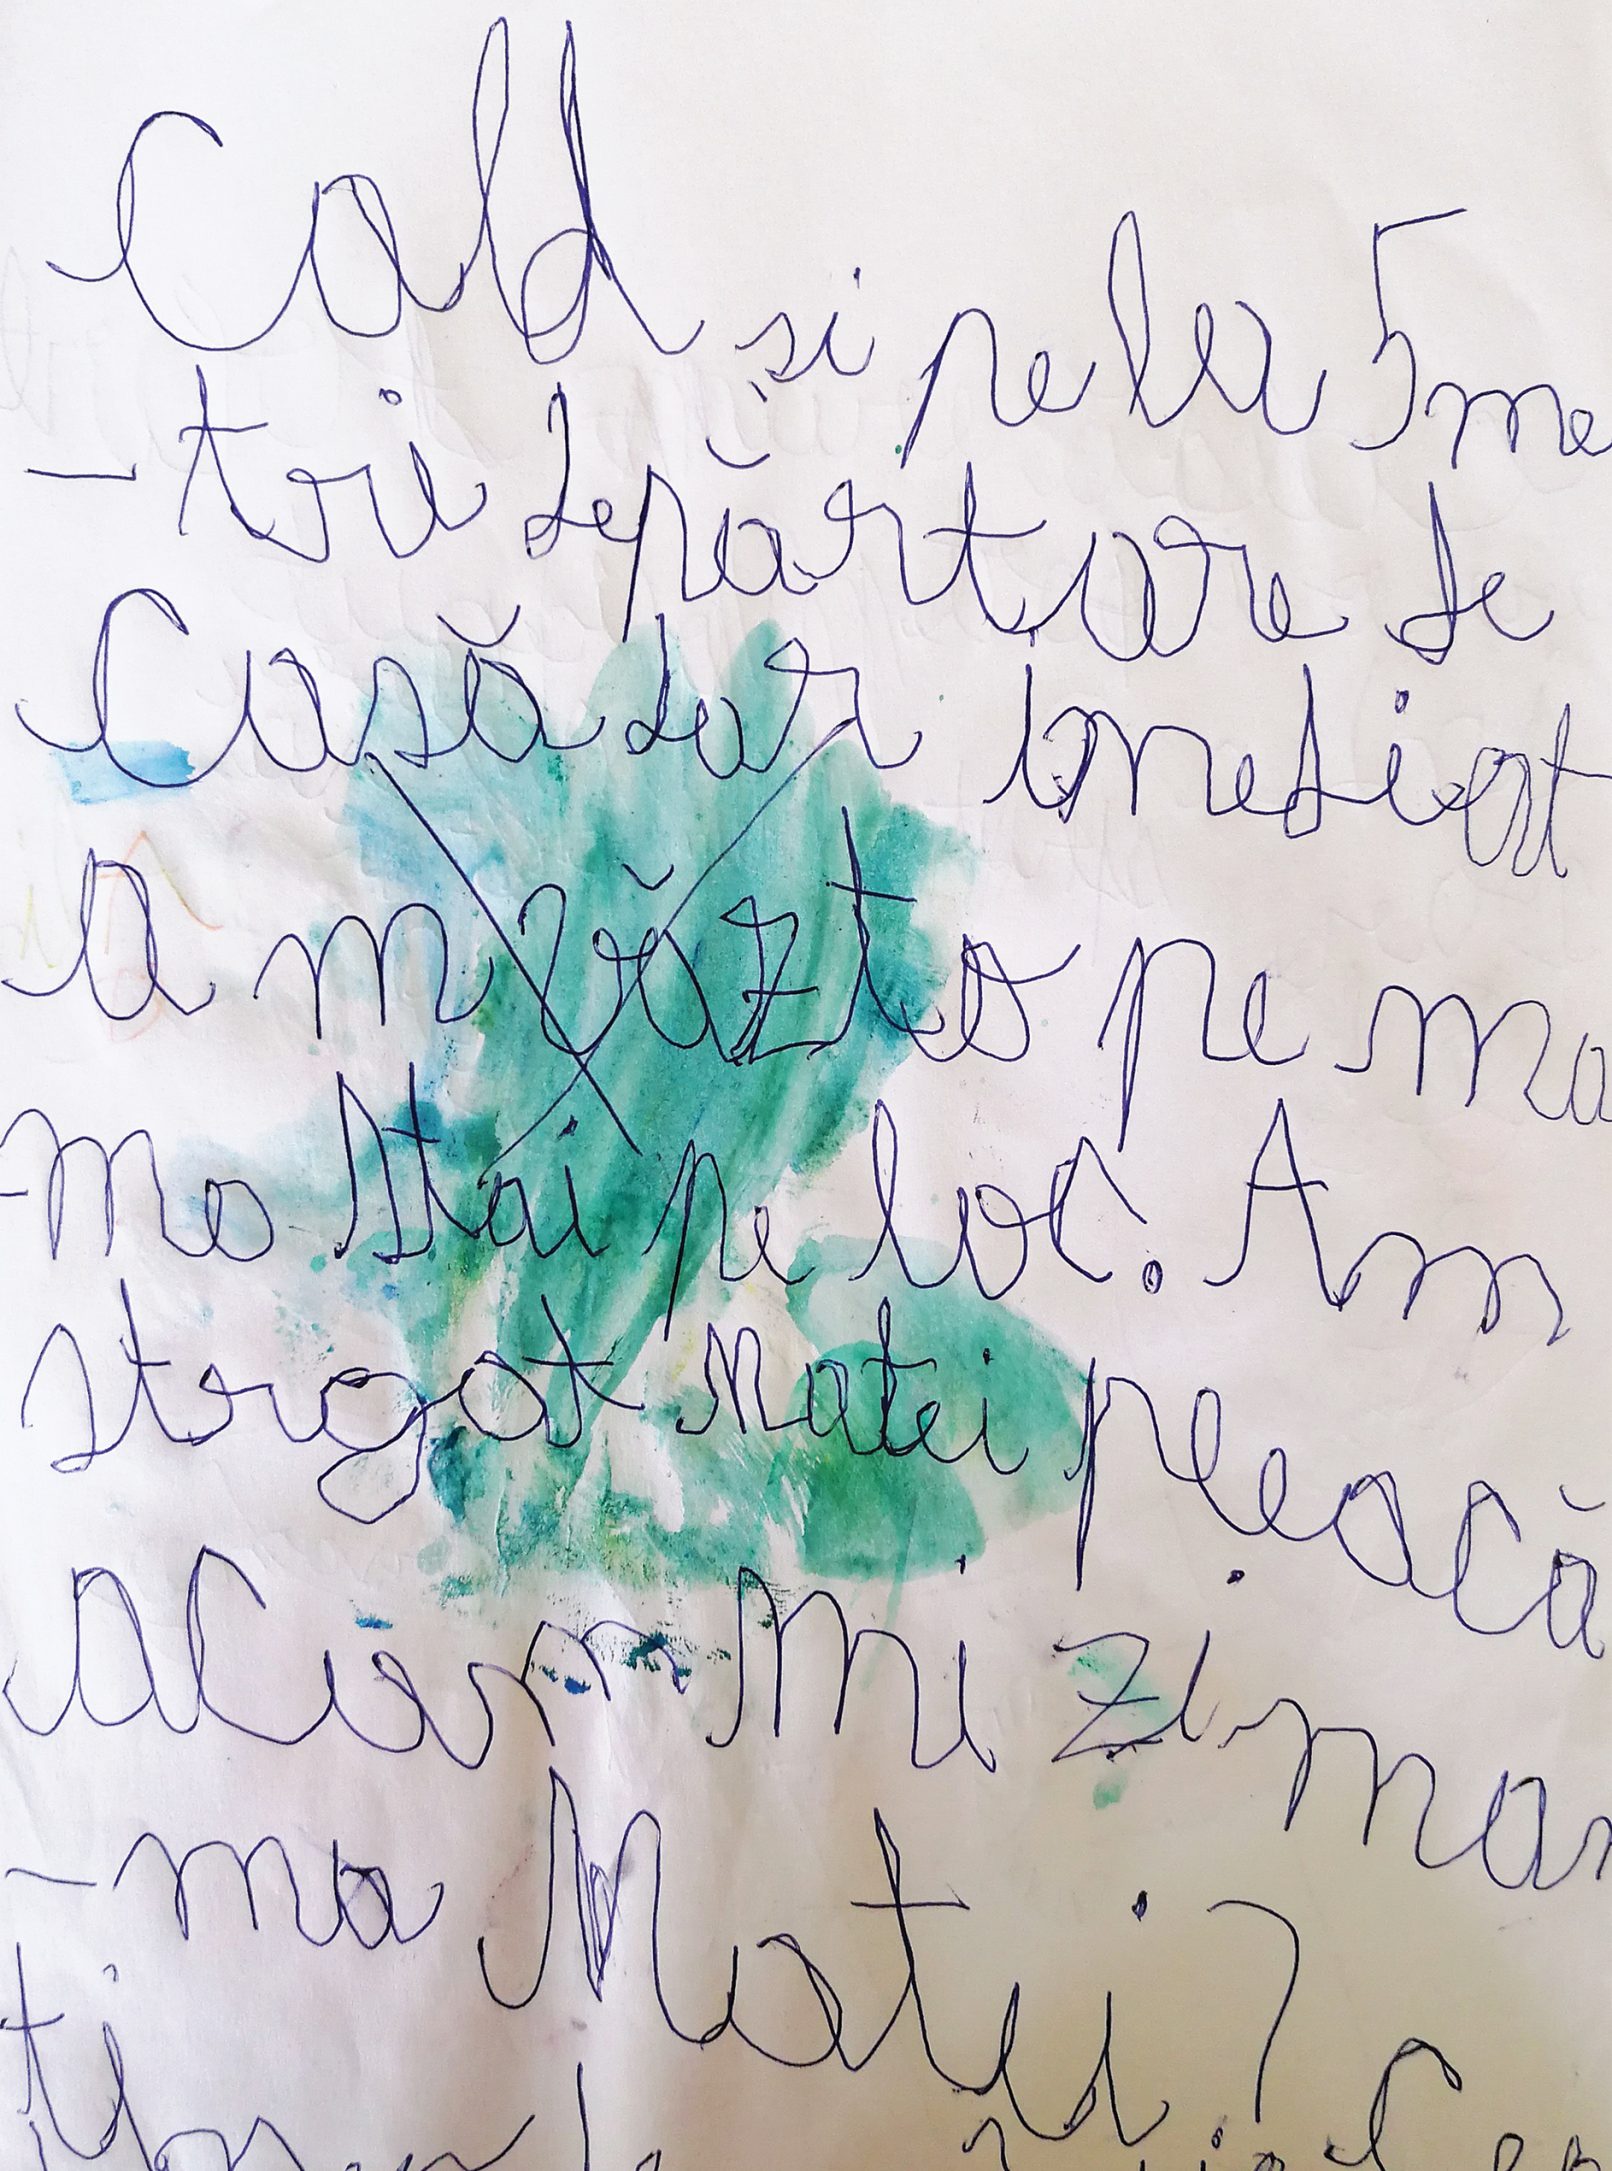 Cald și pe la 5 me
-tri depărtare de
Casă dar imediat
am văzt o pe ma
-ma stai pe loc. Am
strgat Matei pleacă
acum mi zi ma
-ma Matei?